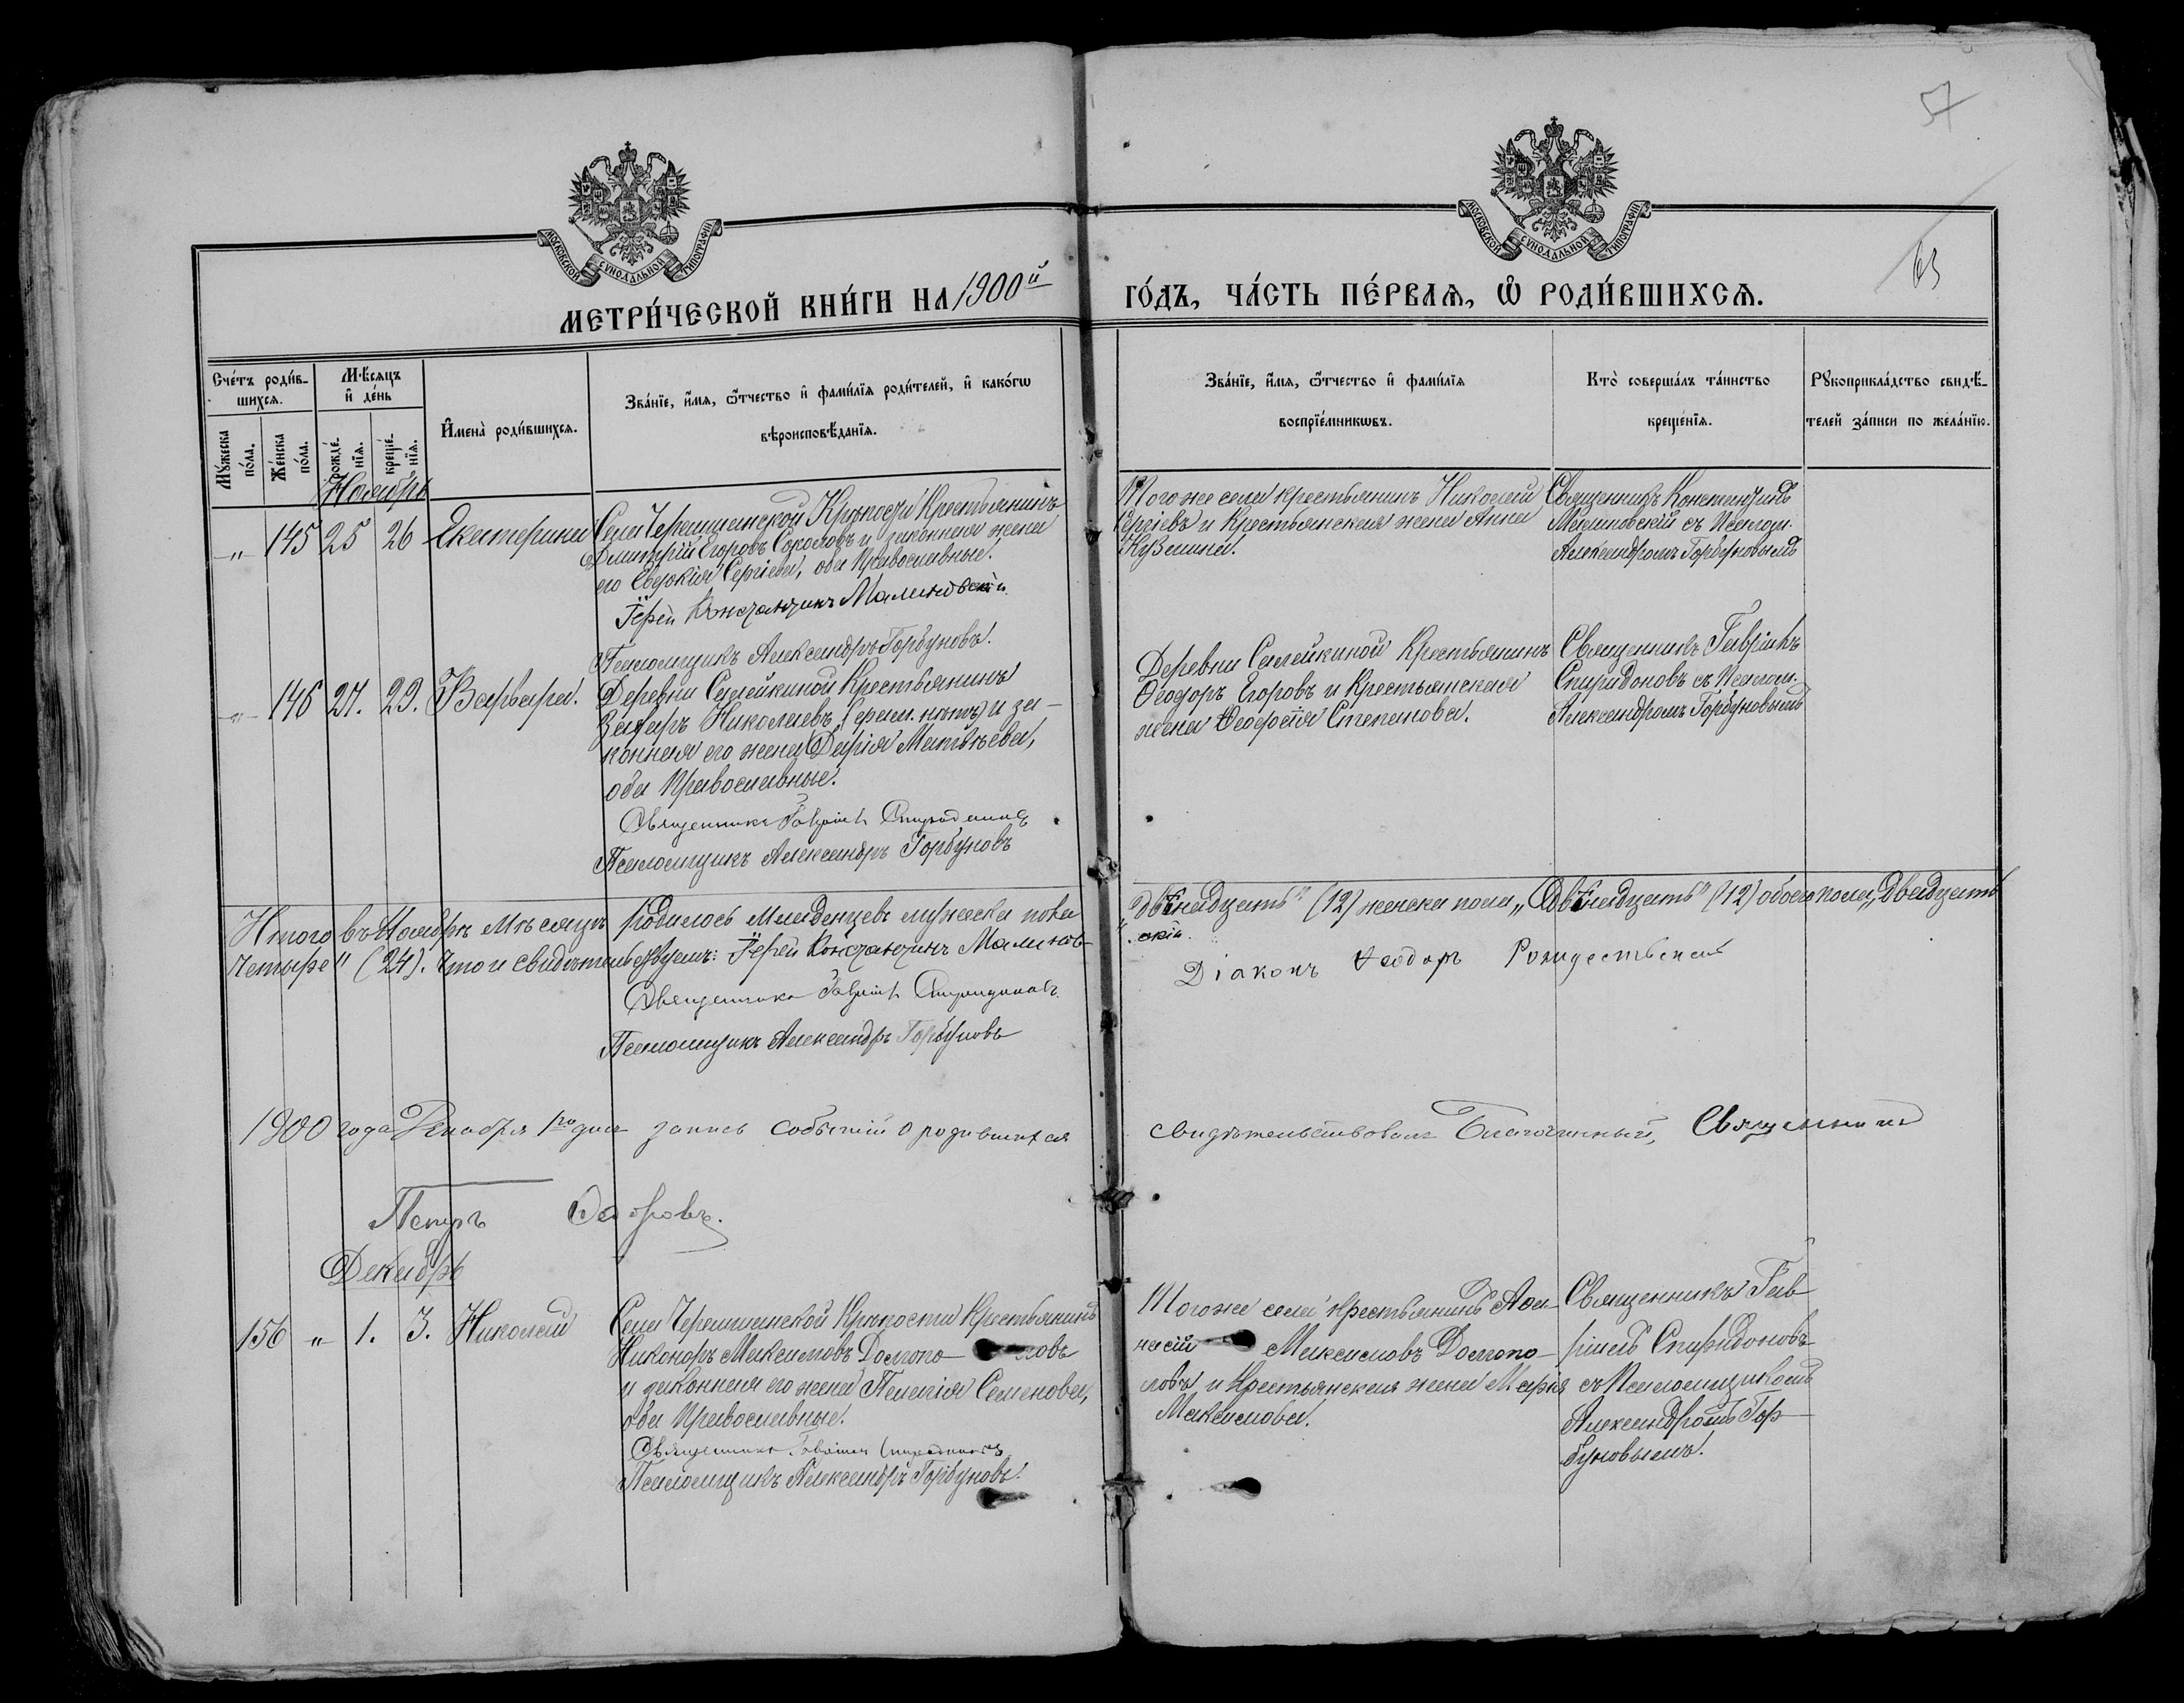 57
63
МОСКОВСКОЙ СУНОДАЛЬНОЙ ТИПОГРАФІИ
МОСКОВСКОЙ СУНОДАЛЬНОЙ ТИПОГРАФІИ
МЕТРИ́ЧЕСКОЙ КНИ́ГИ НА 1900й
ГО́ДЪ, ЧА́СТЬ ПЕ́РВАѦ, Ѡ РОДИ́ВШИХСѦ.
Сче́тъ роди́в-
шихсѧ.
Мꙋ́жеска по́ла.
Же́нска по́ла.
Мѣ́сѧцъ
и҆ де́нь
рожде́-
нїѧ.
креще́-
нїѧ.
И҆мена̀ роди́вшихсѧ.
Зва́нїе, и҆́мѧ, ѻ҆́тчество и҆ фами́лїѧ роди́телей, и҆ како́гѡ
вѣроисповѣ́данїѧ.
Зва́нїе, и҆́мѧ, ѻ҆́тчество и҆ фами́лїѧ
воспрїе́мникѡвъ.
Кто̀ соверша́лъ та́инство
креще́нїѧ.
Рꙋкоприкла́дство свидѣ́-
телей за́писи по жела́нїю.
Ноябрь
„ 145 25 26 Екатерина
Села Черемшанской Крѣпости Крестьянинъ
Димитрій Егоровъ Соколовъ и законная жена
его Евдокія Сергіева, оба Православные.
Іерей Константинъ Малиновскій
Псаломщикъ Александръ Горбуновъ.
Того же села крестьянинъ Николай
Сергіевъ и Крестьянская жена Анна
Кузьмина.
Священникъ Константинъ
Малиновскій съ Псалом.
Александромъ Горбуновымъ
„ 146 27. 29. Варвара.
Деревни Селейкиной Крестьянинъ
Захаръ Николаевъ (фамил. нѣтъ) и за-
конная его жена Дарія Матвѣева,
оба Православные.
Священникъ Гавріилъ Спиридоновъ
Псаломщикъ Александръ Горбуновъ
Деревни Селейкиной Крестьянинъ
Ѳеодоръ Егоровъ и Крестьянская
жена Степанова.
Священникъ Гавріилъ
Спиридоновъ съ Псалом.
Александромъ Горбуновымъ
Итого въ Ноябрѣ мѣсяцѣ родилось младенцевъ мужеска пола
„двѣнадцать“ (12) женска пола „двѣнадцать“ (12) обоего пола „двадцать
четыре“ (24). Что и свидѣтельствуемъ: Іерей Константинъ Малинов-
скій.
Діаконъ Ѳеодоръ Рождественскій
Священникъ Гавріилъ Спиридоновъ.
Псаломщикъ Александръ Горбуновъ
1900 года Декабря 1го дня запись событій о родившихся
свидѣтельствовалъ Благочинный, Священникъ
Петръ
Декабрь
156 „ 1. 3. Николай
Села Черемшанской Крѣпости Крестьянинъ
Никоноръ Максимовъ Долгопо-ловъ
и законная его жена Пелагія Семенова,
оба Православные.
Священникъ Гавріилъ Спиридоновъ
Псаломщикъ Александръ Горбуновъ.
Того же села крестьянинъ Аѳа-
насій Максимовъ Долгопо-
ловъ и Крестьянская жена Марія
Максимова.
Священникъ Гав-
ріилъ Спиридоновъ
съ Псаломщикомъ
Александромъ Гор-
буновымъ.